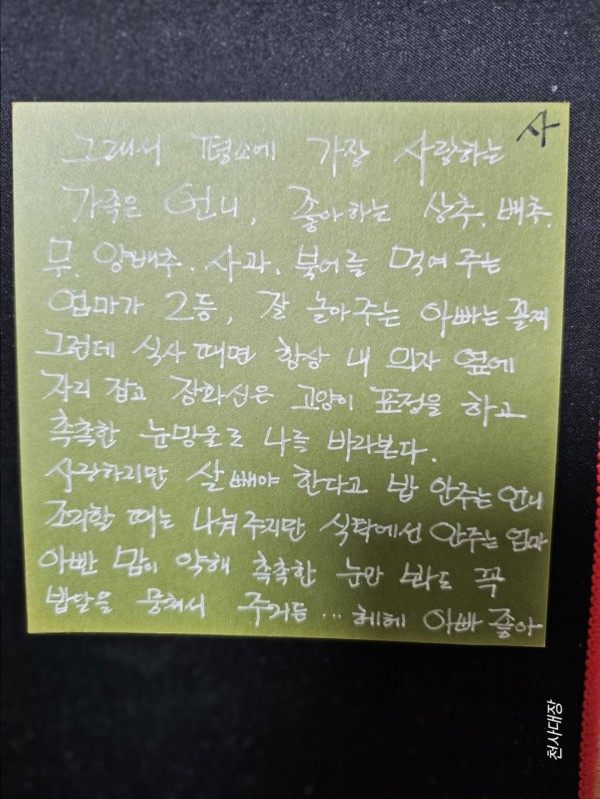 사
그래서 평소에 가장 사랑하는
가족은 언니, 좋아하는 상추, 배추,
무, 양배추, 사과, 북어를 먹여주는
엄마가 2등, 잘 놀아주는 아빠는 꼴찌
그런데 식사 때면 항상 내 의자 옆에
자리 잡고 장화신은 고양이 표정을 하고
촉촉한 눈망울로 나를 바라본다.
사랑하지만 살 빼야 한다고 밥 안주는 언니
조리할 때는 나눠주지만 식탁에선 안주는 엄마
아빤 맘이 약해 촉촉한 눈만 봐도 꼭
밥알을 뭉쳐서 주거든... 헤헤 아빠 좋아
천사대장